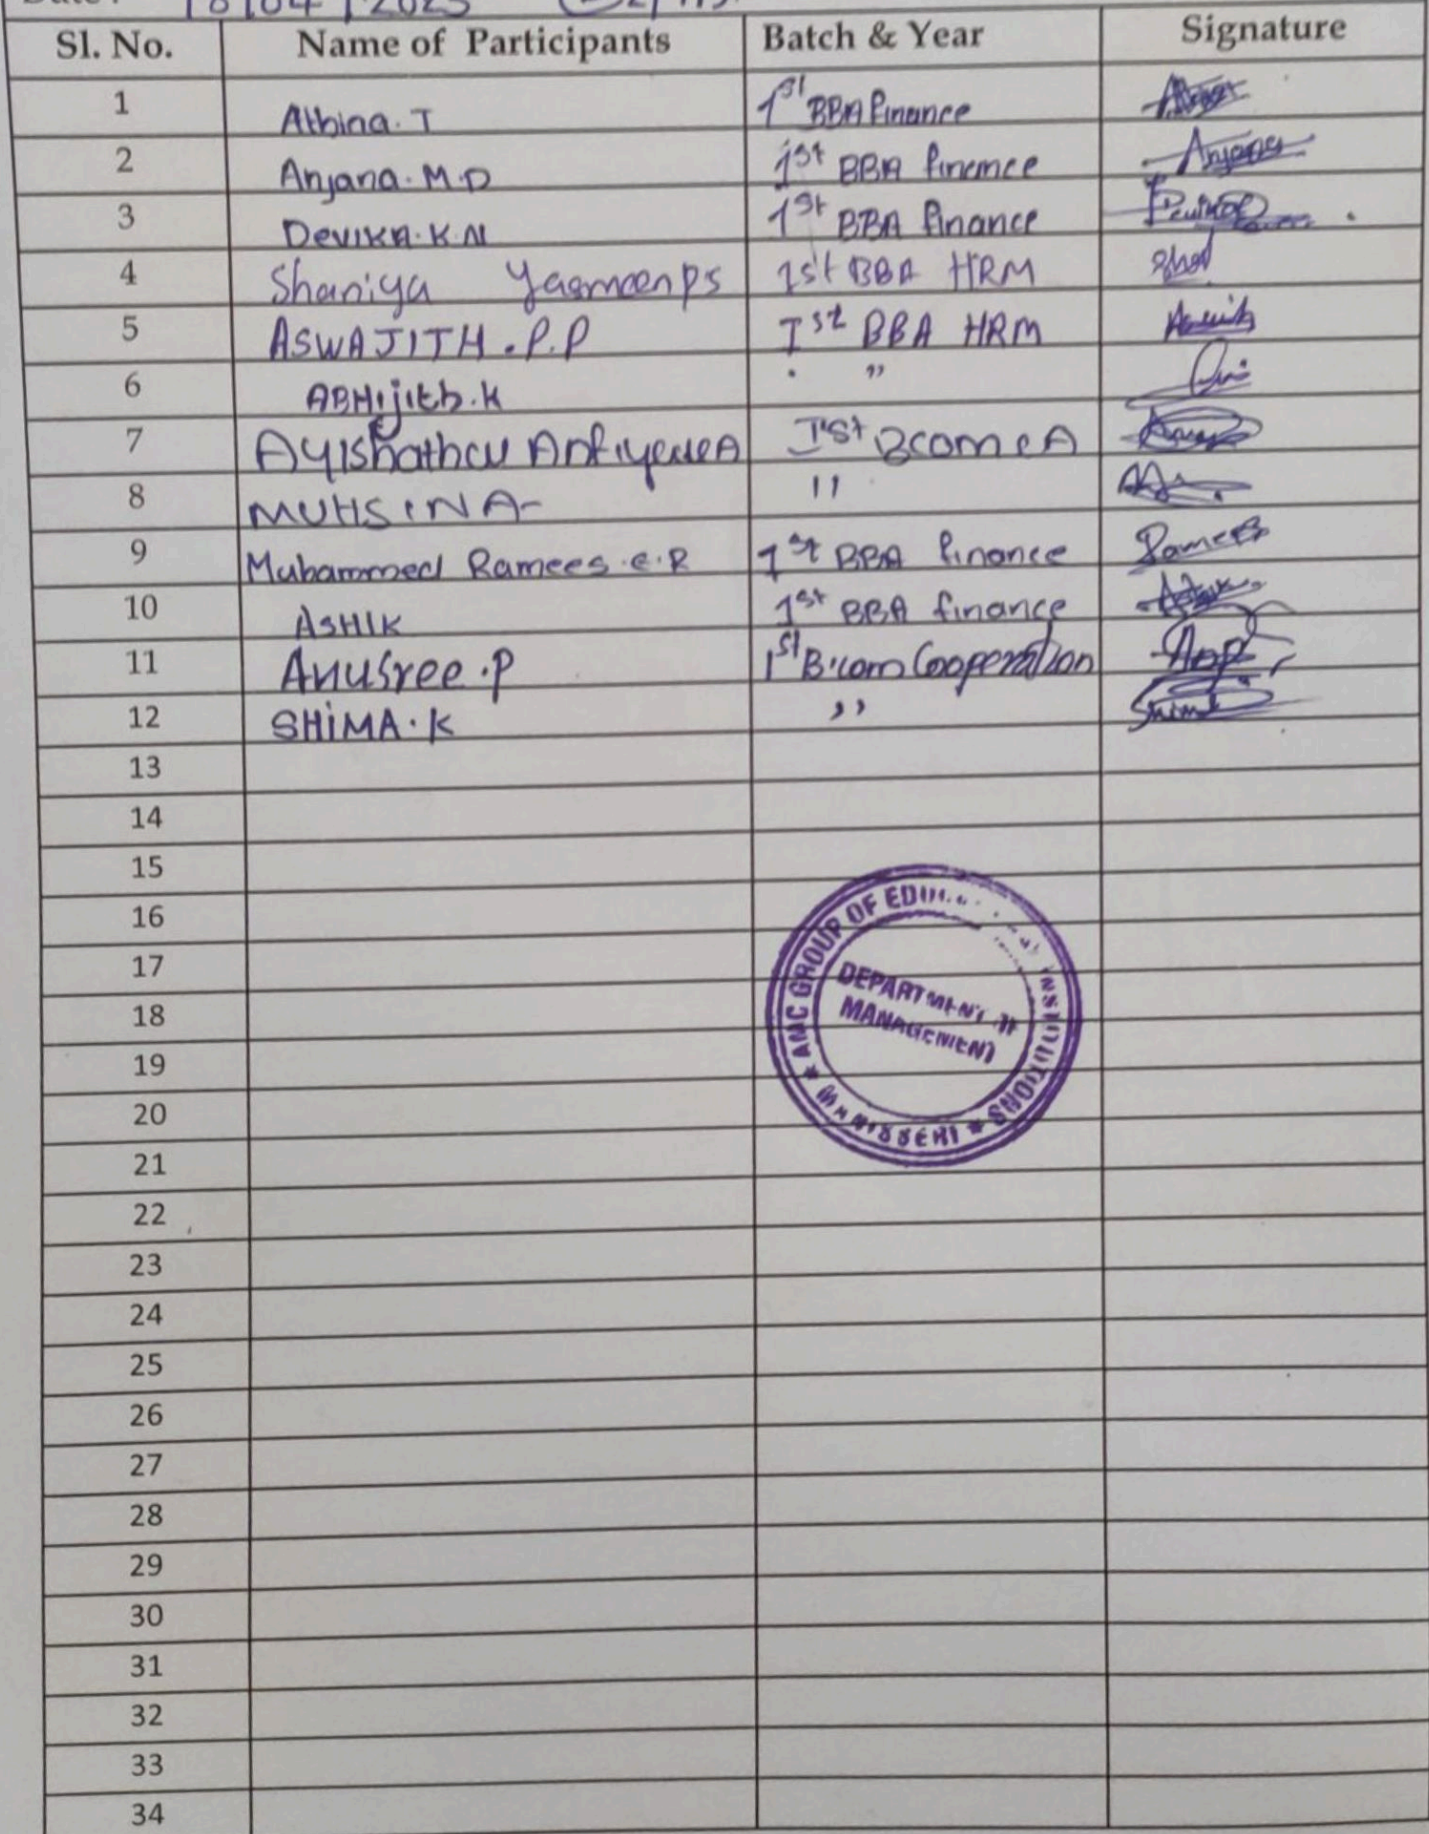 18/04/2023
Sl. No. Name of Participants Batch & Year Signature
1 Athina. T 1st BBA finance
2 Anjana. M.D 1st BBA finance Anjana
3 DEVIKA. K.N 1st BBA finance
4 Shaniya Yasmeen ps 1st BBA HRM
5 ASWAJITH. P.P Ist BBA HRM
6 ABHijith. K "
7 Ist Bcom CA
8 MUHSINA "
9 Muhammed Ramees. C. R 1st BBA finance Ramees
10 ASHIK 1st BBA finance
11 Anusree. P 1st B.com Cooperation
12 SHiMA. K ,,
13
14
15
16
17
18
19
20
21
22
23
24
25
26
27
28
29
30
31
32
33
34
AMC GROUP OF INSTITUTIONS
DEPARTMENT OF
MANAGEMENT